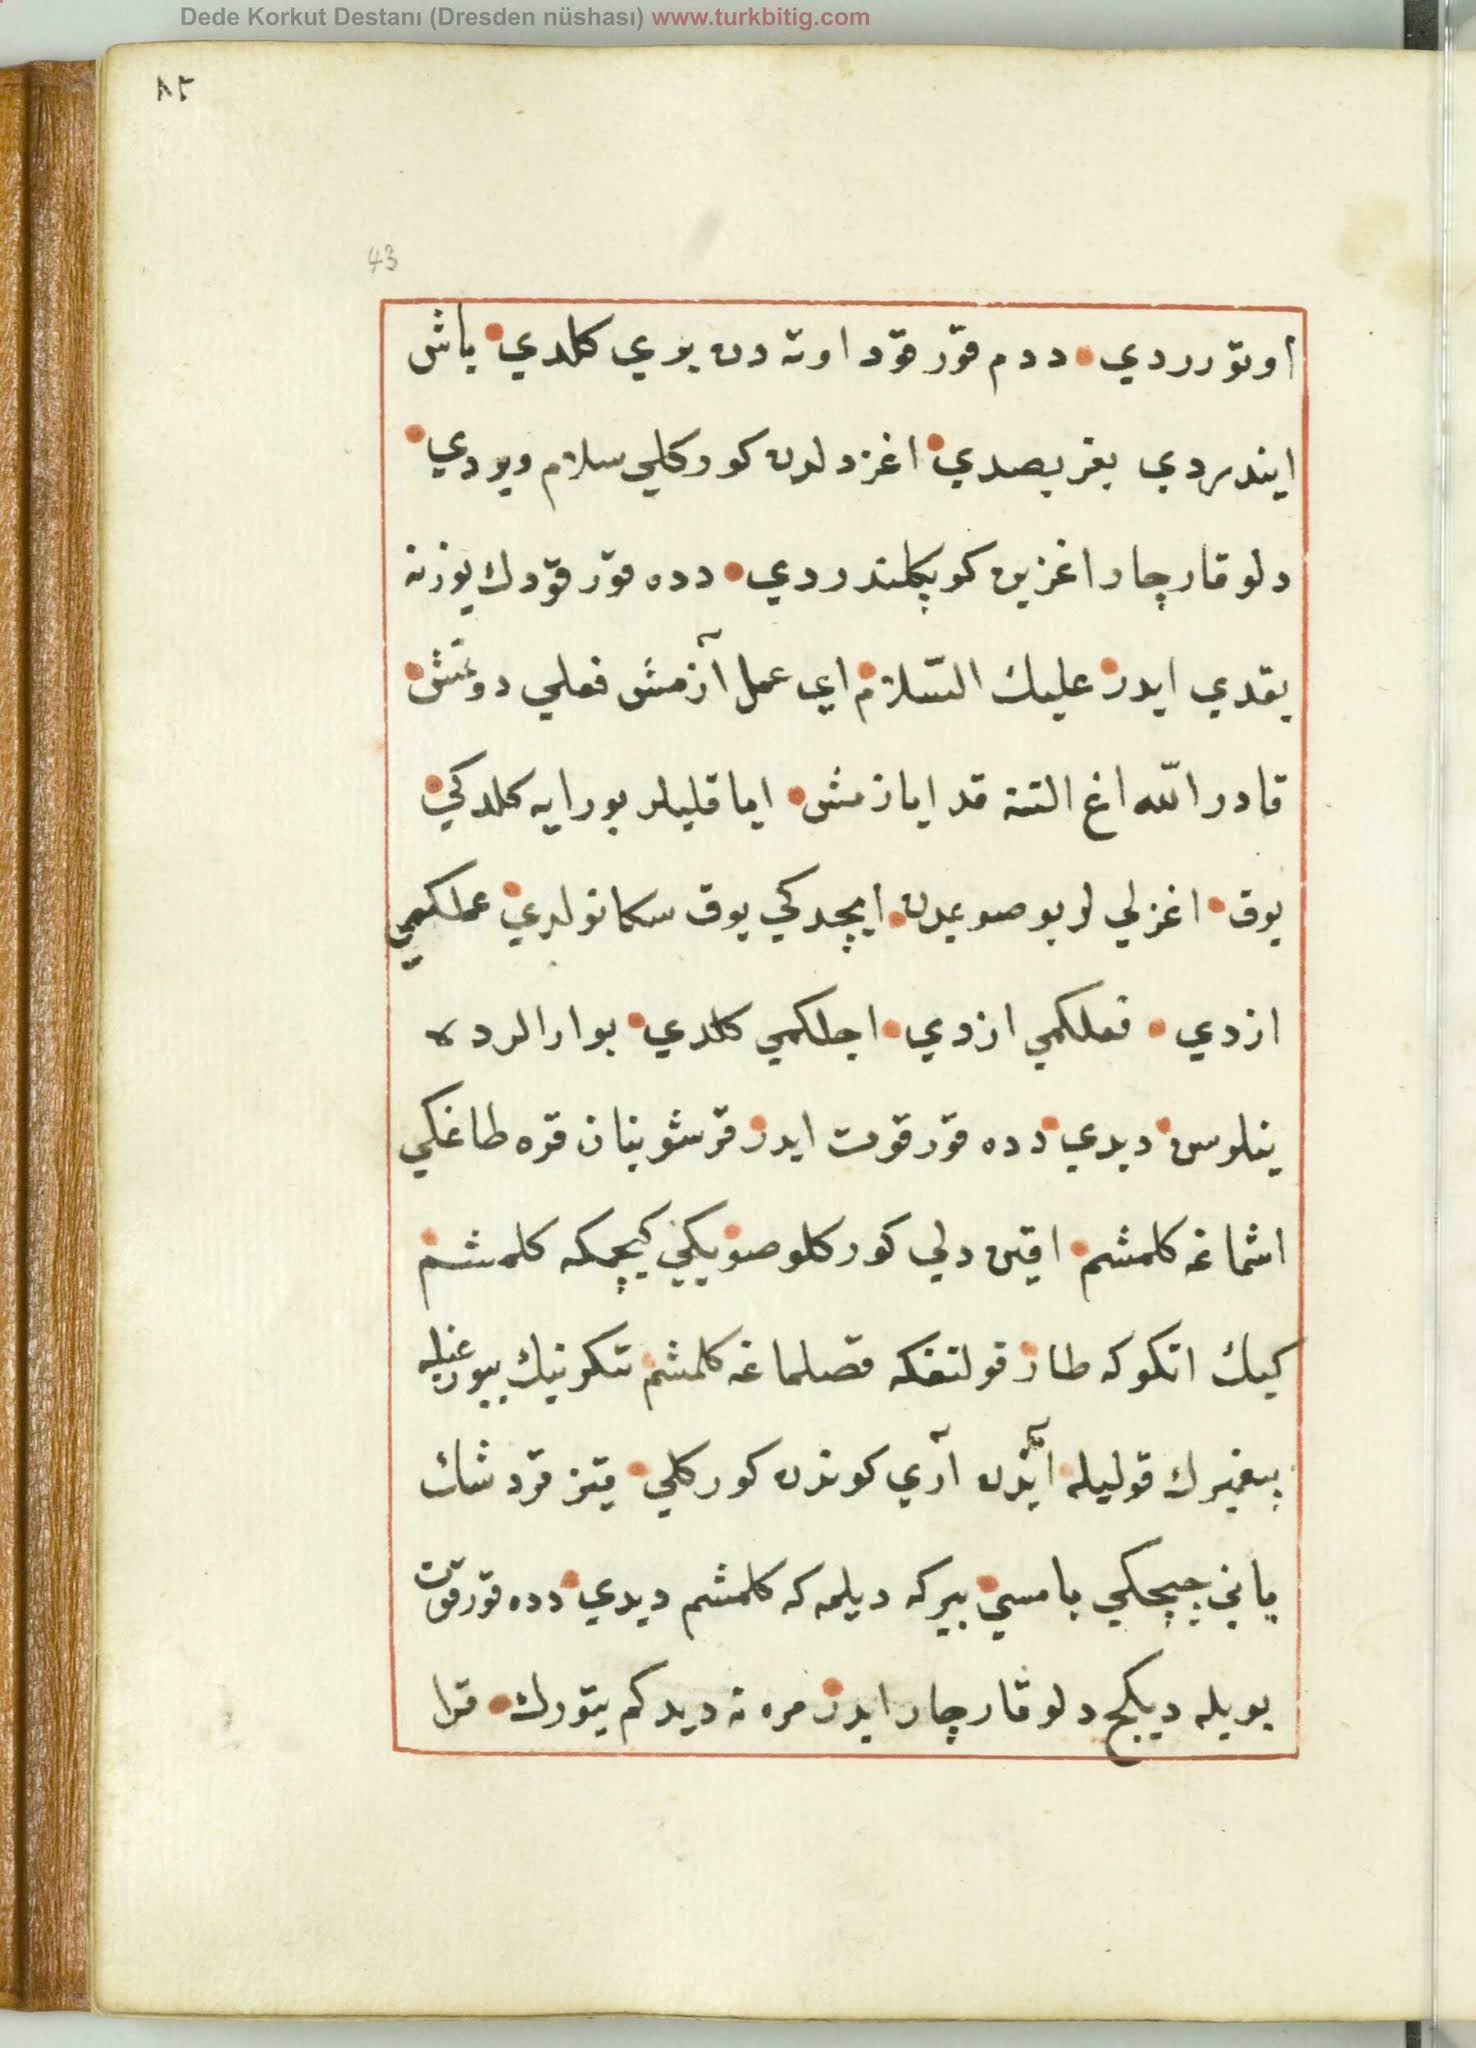 Dede Korkut Destanı (Dresden nüshası) www.turkbitig.com
٨٢
43
اوتوررردي ددم قورقود اوته دن بري كلدي باش
ايندردي بغر بصدي اغز دلدن كوركلي سلام ويردي
دلو قارچار اغزين كوپكلندردي دده قورقودك يوزنه
بقدي ايدر عليك السّلام اي عمل آزمش فعلي دونمش
قادر الله اغ النته قدا يازمش اياقليلر بورايه كلدكي
يوق اغزلي لر بو صويمدن ايچدكي يوق سكا نولدي عملكمي
ازدي فعلكمي ازدي اجلكمي كلدي بوارالرده
ينلوسن ديدي دده قورقوت ايدر قرشو يتان قره طاغكي
اشماغه كلمشم اقين دلي كوركلو صويكي كچمكه كلمشم
كيك اتكوكه طار قولتغكه قصلماغه كلمشم تنكرينيك بيورغيله
پيغمبرك قوليله آيدن آري كوندن كوركلي قيز قرداشك
باني چيچكي بامسي بيركه ديلمه كه كلمشم ديدي دده قورقوت
بويله ديكج دلو قارچار ايدر مره نه ديدكم يتورك قرا